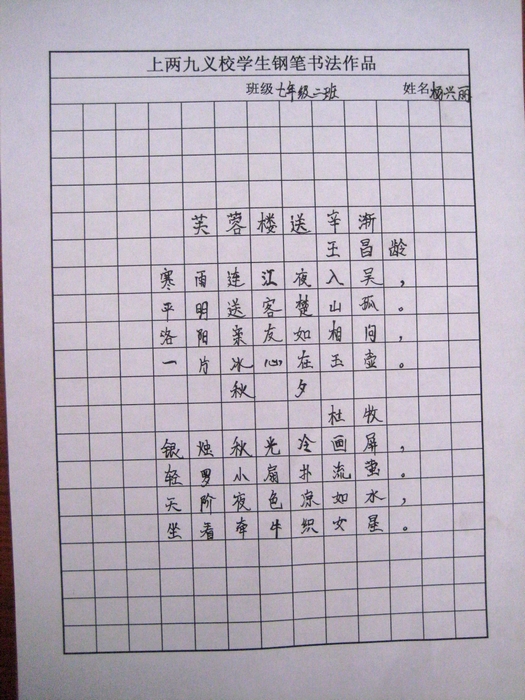 上两九义校学生钢笔书法作品
班级 七年级二班 姓名 杨兴丽
芙蓉楼送辛渐
王昌龄
寒雨连江夜入吴，
平明送客楚山孤。
洛阳亲友如相问，
一片冰心在玉壶。
秋夕
杜牧
银烛秋光冷画屏，
轻罗小扇扑流萤。
天阶夜色凉如水，
坐看牵牛织女星。